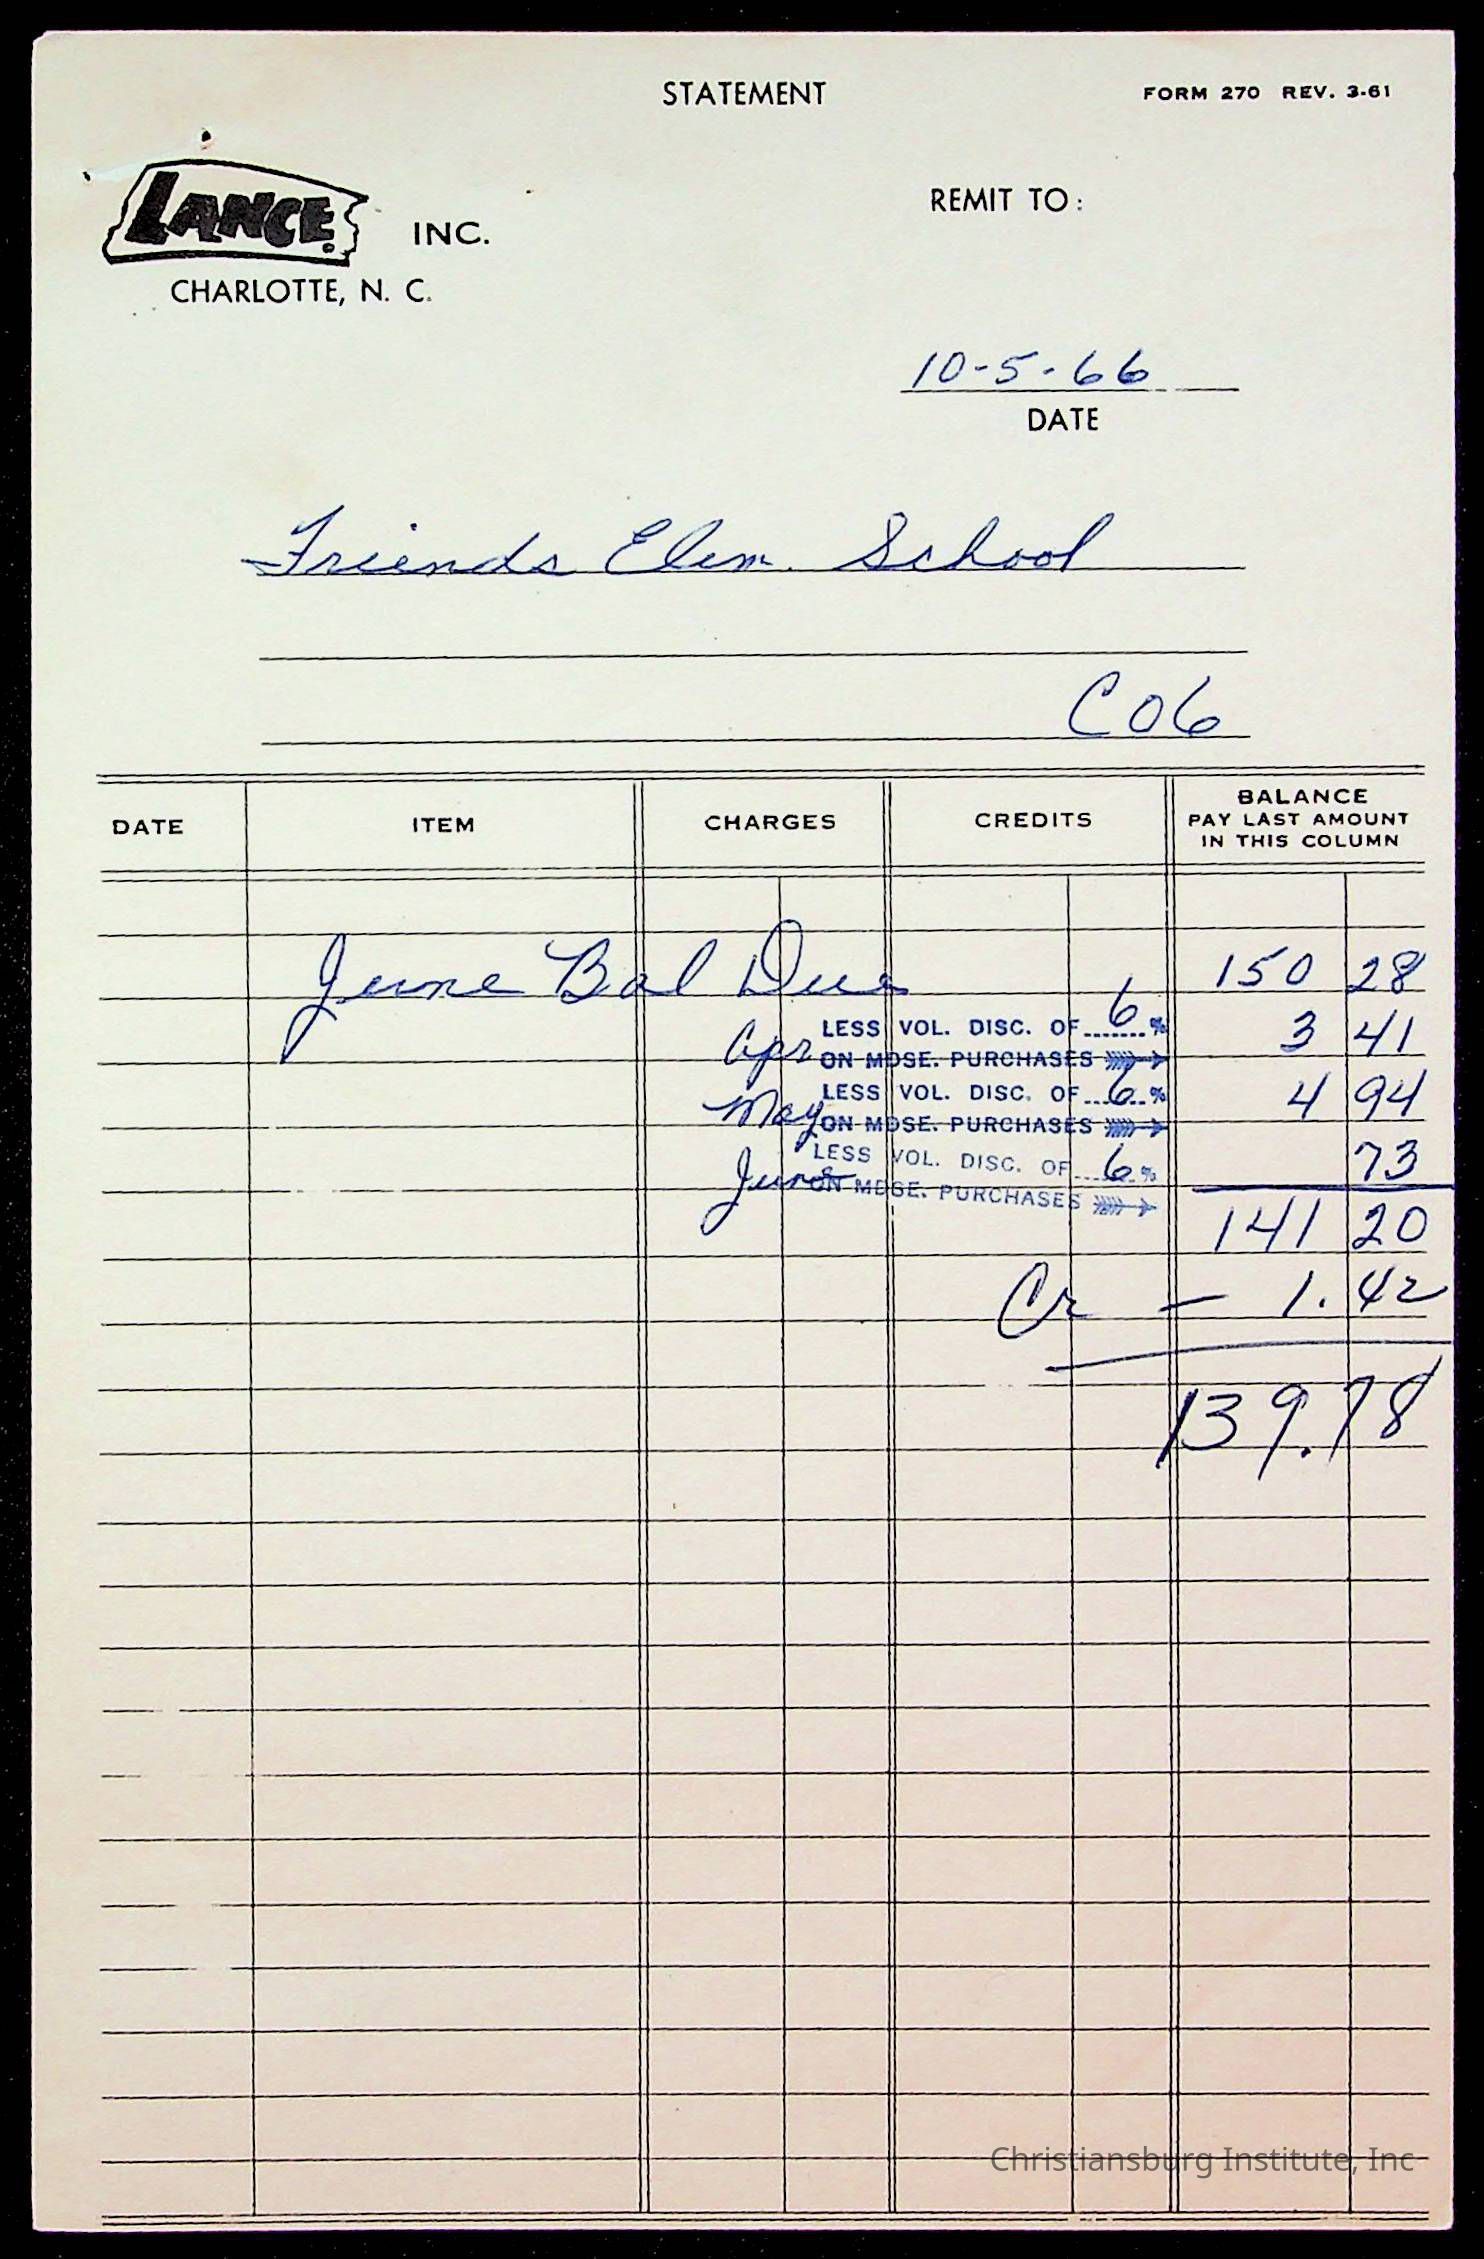 STATEMENT
FORM 270 REV. 3-61
LANCE. INC.
CHARLOTTE, N. C.
REMIT TO:
10-5-66
DATE
Friends Elem. School
C06
DATE ITEM CHARGES CREDITS BALANCE
PAY LAST AMOUNT
IN THIS COLUMN
June Bal Due 150 28
Apr LESS VOL. DISC. OF 6 % 3 41
ON MDSE. PURCHASES
May LESS VOL. DISC. OF 6 % 4 94
ON MDSE. PURCHASES
June LESS VOL. DISC. OF 6 % 73
ON MDSE. PURCHASES
141 20
Cr — 1.42
139.78
Christiansburg Institute, Inc